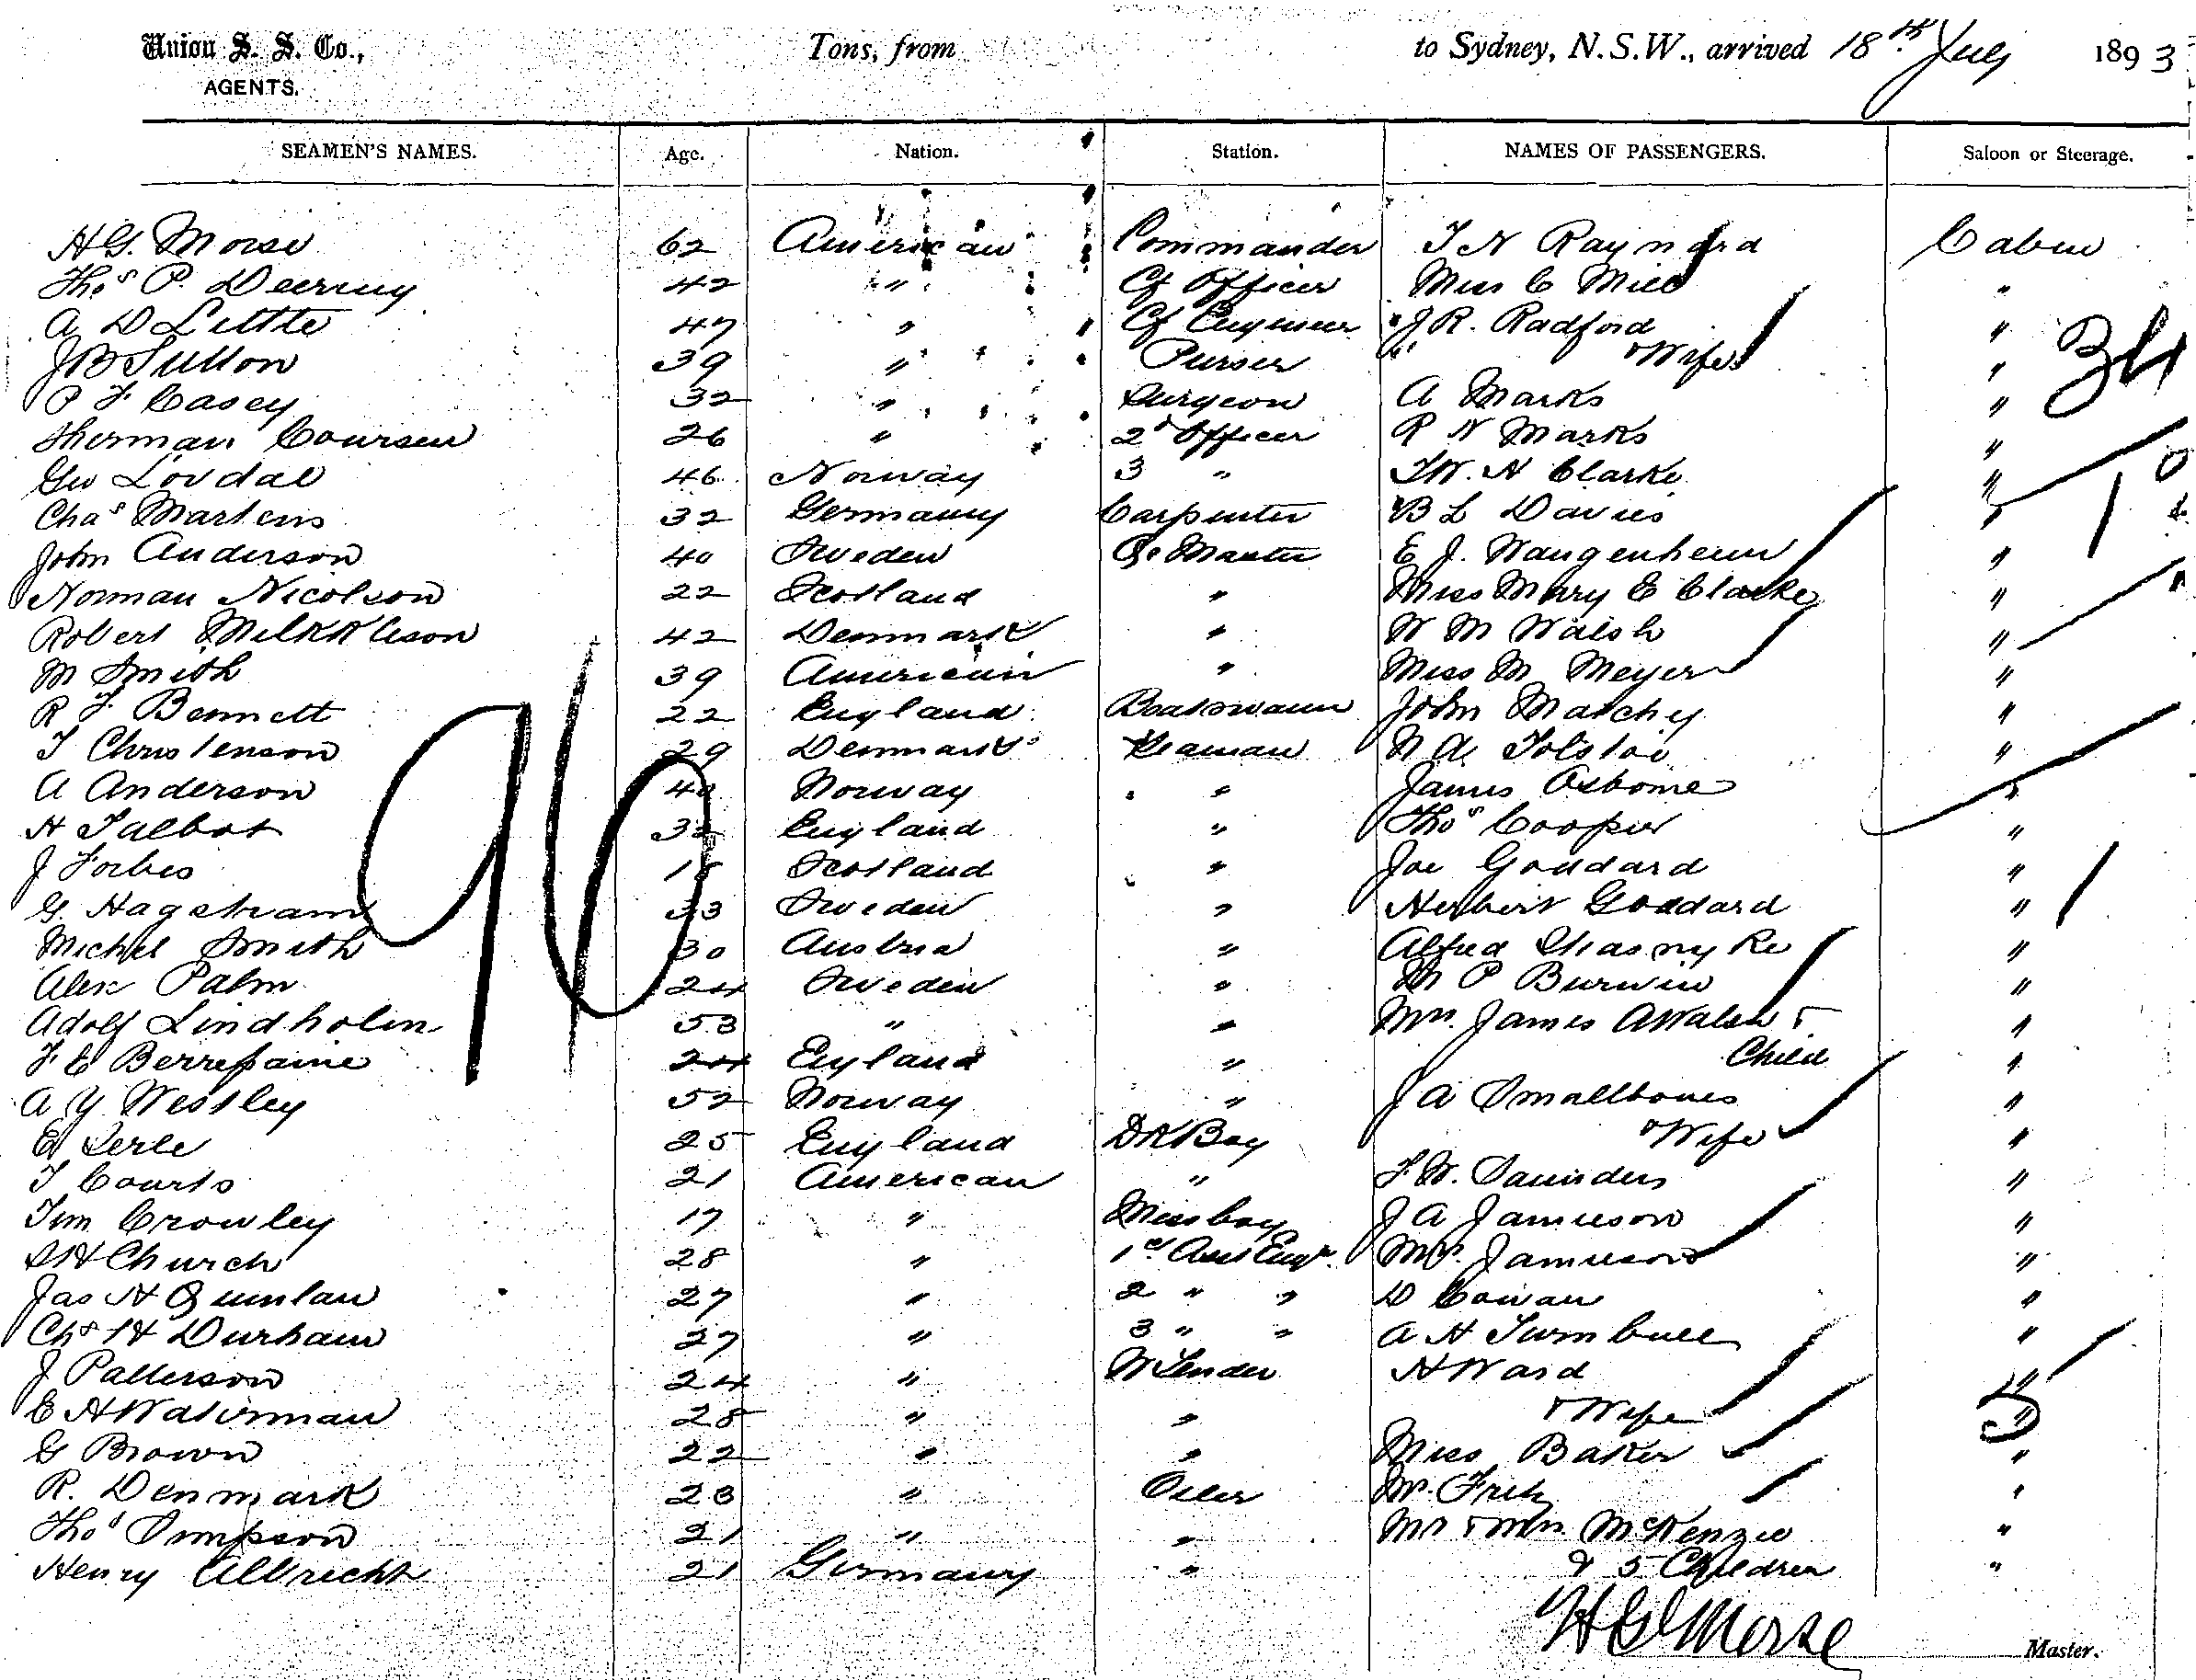 Union S. S. Co., Tons, from to Sydney, N.S.W., arrived 18th July 1893
AGENTS.
SEAMEN'S NAMES. Age. Nation. Station. NAMES OF PASSENGERS. Saloon or Steerage.
HG. Morse 62 American Commander T N Raynard Cabin
Thos P. Deering 42 " Cf Officer Miss C Mill "
A D Little 47 " Cf Engineer J R. Radford "
J B Sutton 39 " Purser " & Wife "
P F Casey 32 " Surgeon A Marks "
Sherman Coursen 26 " 2d Officer R N Marks "
Geo Lovdal 46 Norway 3 " T W. N Clarke "
Chas Martens 32 Germany Carpenter B L Davies "
John Anderson 40 Sweden Qr Master E J. Wangenheim "
Norman Nicolson 22 Scotland " Miss Mary E Clarke "
Robert 42 Denmark " W M Walsh "
M Smith 39 American " Miss M Meyer "
R F Bennett 22 England Boatswain John "
T Christenson 29 Denmark Seaman N de Tolstoi "
A Anderson 40 Norway " James Osborne "
H Talbot 32 England " Thos Cooper "
J Forbes 18 Scotland " Joe Goddard "
G. Hagstram 33 Sweden " Herbert Goddard "
Michel Smith 30 Austria " Alfred "
Alex Palm 24 Sweden " M P Burwin "
Adolf Lindholm 53 " " Mrs. James A Walsh &
F E 24 England " Child "
A Y. Westley 52 Norway " J A Smallbones "
E Serle 25 England DK Boy & Wife "
T Courts 21 American " F. W. Saunders "
Tim Crowley 17 " Mess boy J A Jamieson "
Church 28 " 1st Asst Engr. Mrs. Jamieson "
Jas H Quinlan 27 " 2 " " D Cowan "
Chs H Durham 27 " 3 " " A H Turnbull "
J Patterson 24 " W Tender H Ward "
E H Waterman 28 " " & Wife "
G Brown 22 " " Miss Baker "
R. Denmark 23 " Oiler Mr. Fritz "
Thos Simpson 21 " " Mr & Mrs McKenzie "
Henry Albrecht 21 Germany " & 5 Children "
96
H G Morse Master.